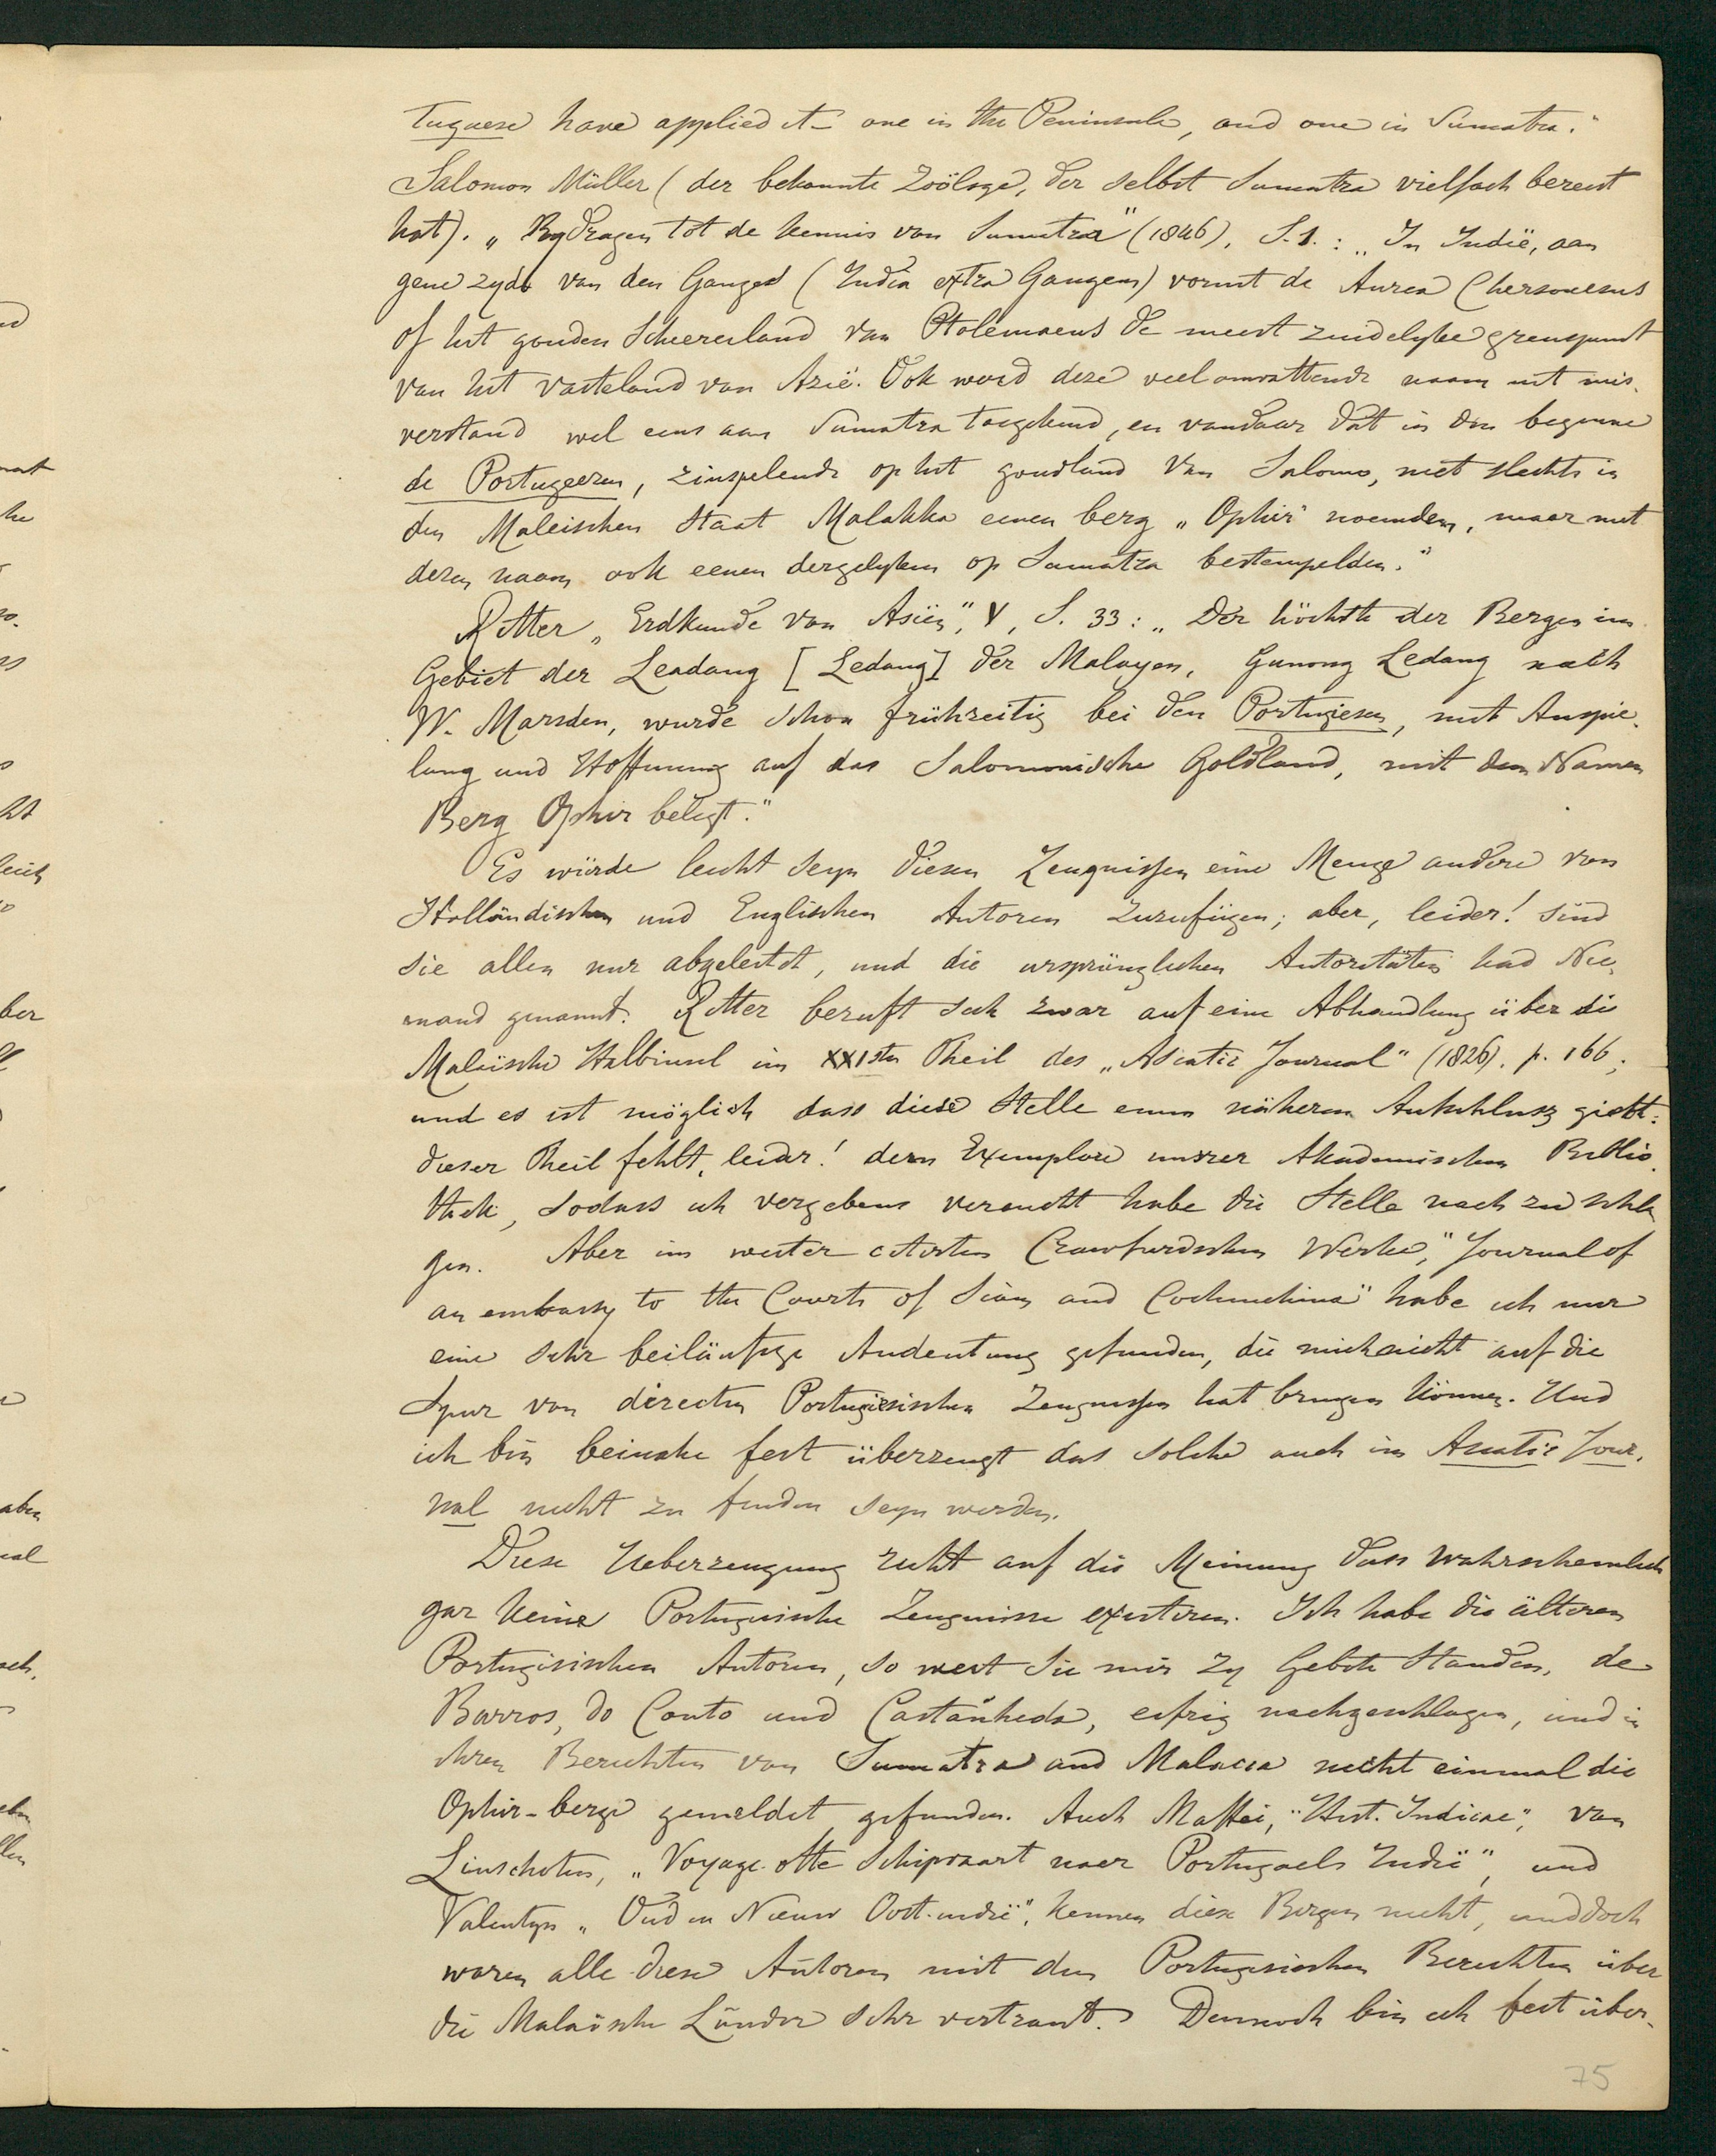 tuguese have applied it – one in the Peninsula, and one in Sumatra."
Salomon Müller (der bekannte Zoöloge, der selbst Sumatra vielfach bereist
hat). „Bydragen tot de kennis van Sumatra" (1846), S. 1. : „In Indië, aan
gene zyde van den Ganges (India extra Gangem) vormt de Aurea Chersonesus
of het gouden Schiereiland van Ptolemaeus de meest zuidelyke grenspunt
van het vasteland van Azië. Ook werd deze veelomvattende naam uit mis-
verstand wel eens aan Sumatra toegekend, en vandaar dat in den beginne
de Portugeezen, zinspelende op het goudland van Salomo, niet slechts in
den Maleischen Staat Malakka eenen berg „Ophir" noemden, maar met
dezen naam ook eenen dergelyken op Sumatra bestempelden."
Ritter „Erdkunde von Asiën", V, S. 33 : „Der höchste der Berge im
Gebiet der Leadang [Ledang] der Malayen, Gunong Ledang nach
W. Marsden, wurde schon frühzeitig bei den Portugiesen, mit Anspie-
lung und Hoffnung auf das Salomonische Goldland, mit dem Namen
Berg Ophir belegt."
Es würde leicht seyn diesen Zeugnissen eine Menge andere von
Holländischen und Englischen Autoren zuzufügen; aber, leider! sind
sie allen nur abgeleitet, und die ursprünglichen Autoritäten had Nie-
mand genannt. Ritter beruft sich zwar auf eine Abhandlung über die
Malaische Halbinsel im XXIsten Theil des „Asiatic Journal" (1826). p. 166;
und es ist möglich dass diese Stelle einen näheren Aufschluss giebt:
dieser Theil fehlt, leider! dem Exemplare unsrer Akademischen Biblio-
thek, sodass ich vergebens versucht habe die Stelle nach zu schla
gen. Aber im weiter citirten Crawfurdschen Werke, "Journal of
an embassy to the Courts of Siam and Cochinchina" habe ich nur
eine sehr beiläufige Andeutung gefunden, die mich nicht auf die
Spur von directen Portugiesischen Zeugnissen hat bringen können. Und
ich bin beinahe fest überzeugt das solche auch im Asiatic Jour-
nal nicht zu finden seyn werden.
Diese Ueberzeugung ruht auf die Meinung dass wahrscheinlich
gar keine Portugisische Zeugnisse existiren. Ich habe die älteren
Portugisischen Autoren, so weit sie mir zu Gebote standen, de
Barros, do Couto und Castanheda, eifrig nachgeschlagen, und in
ihren Berichten von Sumatra und Malacca nicht einmal die
Ophir-berge gemeldet gefunden. Auch Maffei, "Hist. Indicae", van
Linschoten, „Voyage ofte Schipvaart naer Portugaels Indië", und
Valentyn „Oud en Nieuw Oost-indië", kennen diese Bergen nicht, und doch
waren alle diese Autoren mit den Portugisischen Berichten über
die Malaische Länder sehr vertraut. Dennoch bin ich fest über-
75